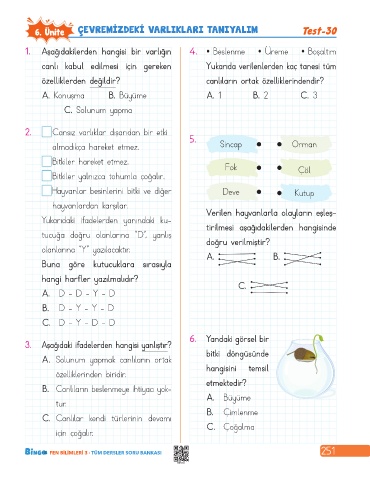 6. Ünite
ÇEVREMİZDEKİ VARLIKLARI TANIYALIM
Test-30
1. Aşağıdakilerden hangisi bir varlığın
canlı kabul edilmesi için gereken
özelliklerden değildir?
A. Konuşma B. Büyüme
C. Solunum yapma
2. Cansız varlıklar dışarıdan bir etki
almadıkça hareket etmez.
Bitkiler hareket etmez.
Bitkiler yalnızca tohumla çoğalır.
Hayvanlar besinlerini bitki ve diğer
hayvanlardan karşılar.
Yukarıdaki ifadelerden yanındaki ku-
tucuğa doğru olanlarına "D", yanlış
olanlarına "Y" yazılacaktır.
Buna göre kutucuklara sırasıyla
hangi harfler yazılmalıdır?
A. D - D - Y - D
B. D - Y - Y - D
C. D - Y - D - D
3. Aşağıdaki ifadelerden hangisi yanlıştır?
A. Solunum yapmak canlıların ortak
özelliklerinden biridir.
B. Canlıların beslenmeye ihtiyacı yok-
tur.
C. Canlılar kendi türlerinin devamı
için çoğalır.
4. • Beslenme • Üreme • Boşaltım
Yukarıda verilenlerden kaç tanesi tüm
canlıların ortak özelliklerindendir?
A. 1 B. 2 C. 3
5.
Sincap • • Orman
Fok • • Çöl
Deve • • Kutup
Verilen hayvanlarla olayların eşleş-
tirilmesi aşağıdakilerden hangisinde
doğru verilmiştir?
A. B.
C.
6. Yandaki görsel bir
bitki döngüsünde
hangisini temsil
etmektedir?
A. Büyüme
B. Çimlenme
C. Çoğalma
BİNGO FEN BİLİMLERİ 3 - TÜM DERSLER SORU BANKASI
251